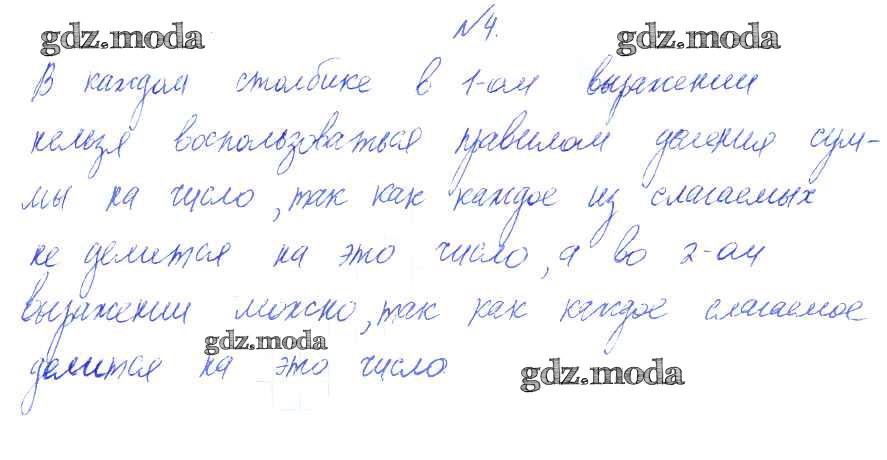 gdz.moda №4. gdz.moda
В каждом столбике в 1-ом выражении
нельзя воспользоваться правилом деления сум-
мы на число, так как каждое из слагаемых
не делится на это число, а во 2-ом
выражении можно, так как каждое слагаемое
gdz.moda
делится на это число
gdz.moda